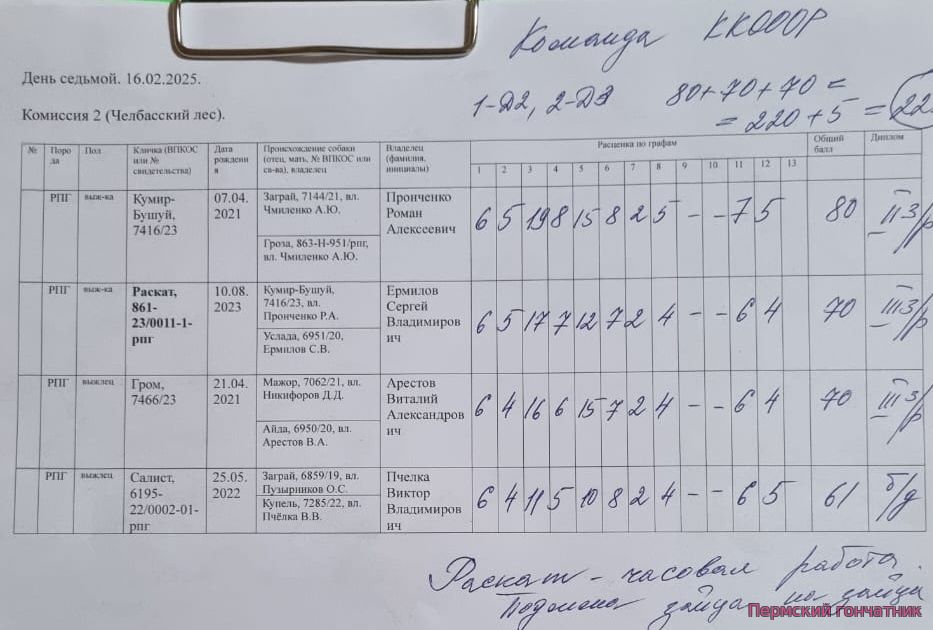 Команда ККОООР
День седьмой. 16.02.2025.
1-Д2, 2-Д3 80+70+70 =
= 220+5 = 22
Комиссия 2 (Челбасский лес).
№ Порода Пол Кличка (ВПКОС или № свидетельства) Дата рождения Происхождение собаки (отец, мать, № ВПКОС или св-ва), владелец Владелец (фамилия, инициалы) Расценка по графам Общий балл Диплом
1 2 3 4 5 6 7 8 9 10 11 12 13
РПГ выж-ка Кумир-Бушуй, 7416/23 07.04.2021 Заграй, 7144/21, вл. Чмиленко А.Ю. Гроза, 863-Н-951/рпг, вл. Чмиленко А.Ю. Пронченко Роман Алексеевич 6 5 19 8 15 8 2 5 - - 7 5 80 II з/р
РПГ выж-ка Раскат, 861-23/0011-1-рпг 10.08.2023 Кумир-Бушуй, 7416/23, вл. Пронченко Р.А. Услада, 6951/20, Ермилов С.В. Ермилов Сергей Владимирович 6 5 17 7 12 7 2 4 - - 6 4 70 III з/р
РПГ выжлец Гром, 7466/23 21.04.2021 Мажор, 7062/21, вл. Никифоров Д.Д. Айда, 6950/20, вл. Арестов В.А. Арестов Виталий Александрович 6 4 16 6 15 7 2 4 - - 6 4 70 III з/р
РПГ выжлец Салист, 6195-22/0002-01-рпг 25.05.2022 Заграй, 6859/19, вл. Пузырников О.С. Купель, 7285/22, вл. Пчёлка В.В. Пчелка Виктор Владимирович 6 4 11 5 10 8 2 4 - - 6 5 61 б/д
Раскат - часовая работа.
зайца по зайцу
Пермский гончатник